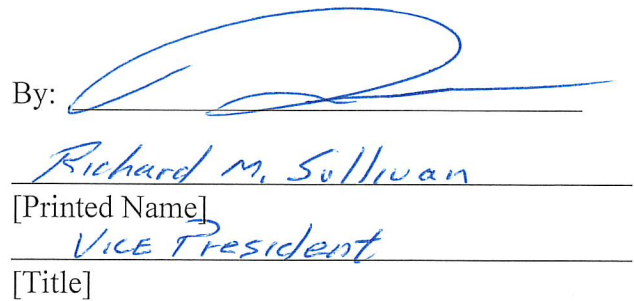 By:
Richard M. Sullivan
[Printed Name]
Vice President
[Title]